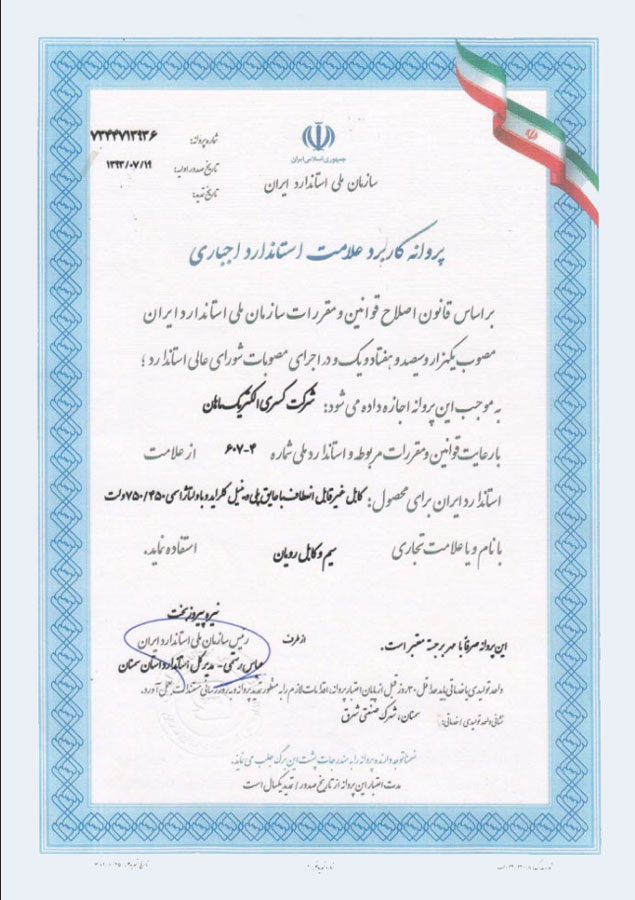 جمهوری اسلامی ایران
سازمان ملی استاندارد ایران
شماره پروانه: ۷۳۴۴۷۱۳۹۳۶
تاریخ صدور اولیه: ۱۳۹۳/۰۷/۱۹
تاریخ تمدید:
پروانه کاربرد علامت استاندارد اجباری
بر اساس قانون اصلاح قوانین و مقررات سازمان ملی استاندارد ایران
مصوب یکهزار و سیصد و هفتاد و یک و در اجرای مصوبات شورای عالی استاندارد؛
به موجب این پروانه اجازه داده می شود: شرکت کسری الکتریک ماهان
با رعایت قوانین و مقررات مربوطه و استاندارد ملی شماره ۶۰۷-۴ از علامت
استاندارد ایران برای محصول: کابل غیر قابل انعطاف با عایق پلی وینیل کلراید و با ولتاژ اسمی ۷۵۰/۴۵۰ ولت
با نام و یا علامت تجاری سیم و کابل رویان استفاده نماید.
نیره پیروزبخت
رئیس سازمان ملی استاندارد ایران
این پروانه صرفا با مهر برجسته معتبر است. از طرف
عباس رستمی - مدیر کل استاندارد استان سمنان
واحد تولیدی یا خدماتی باید حداقل ۳۰ روز قبل از پایان اعتبار پروانه، اقدامات لازم را به منظور تمدید پروانه و به روز رسانی مستندات بعمل آورد.
نشانی واحد تولیدی / خدماتی: سمنان، شهرک صنعتی شرق
ضمنا توجه دارنده پروانه را به مندرجات پشت این برگ جلب می نماید.
مدت اعتبار این پروانه از تاریخ صدور / تمدید یکسال است